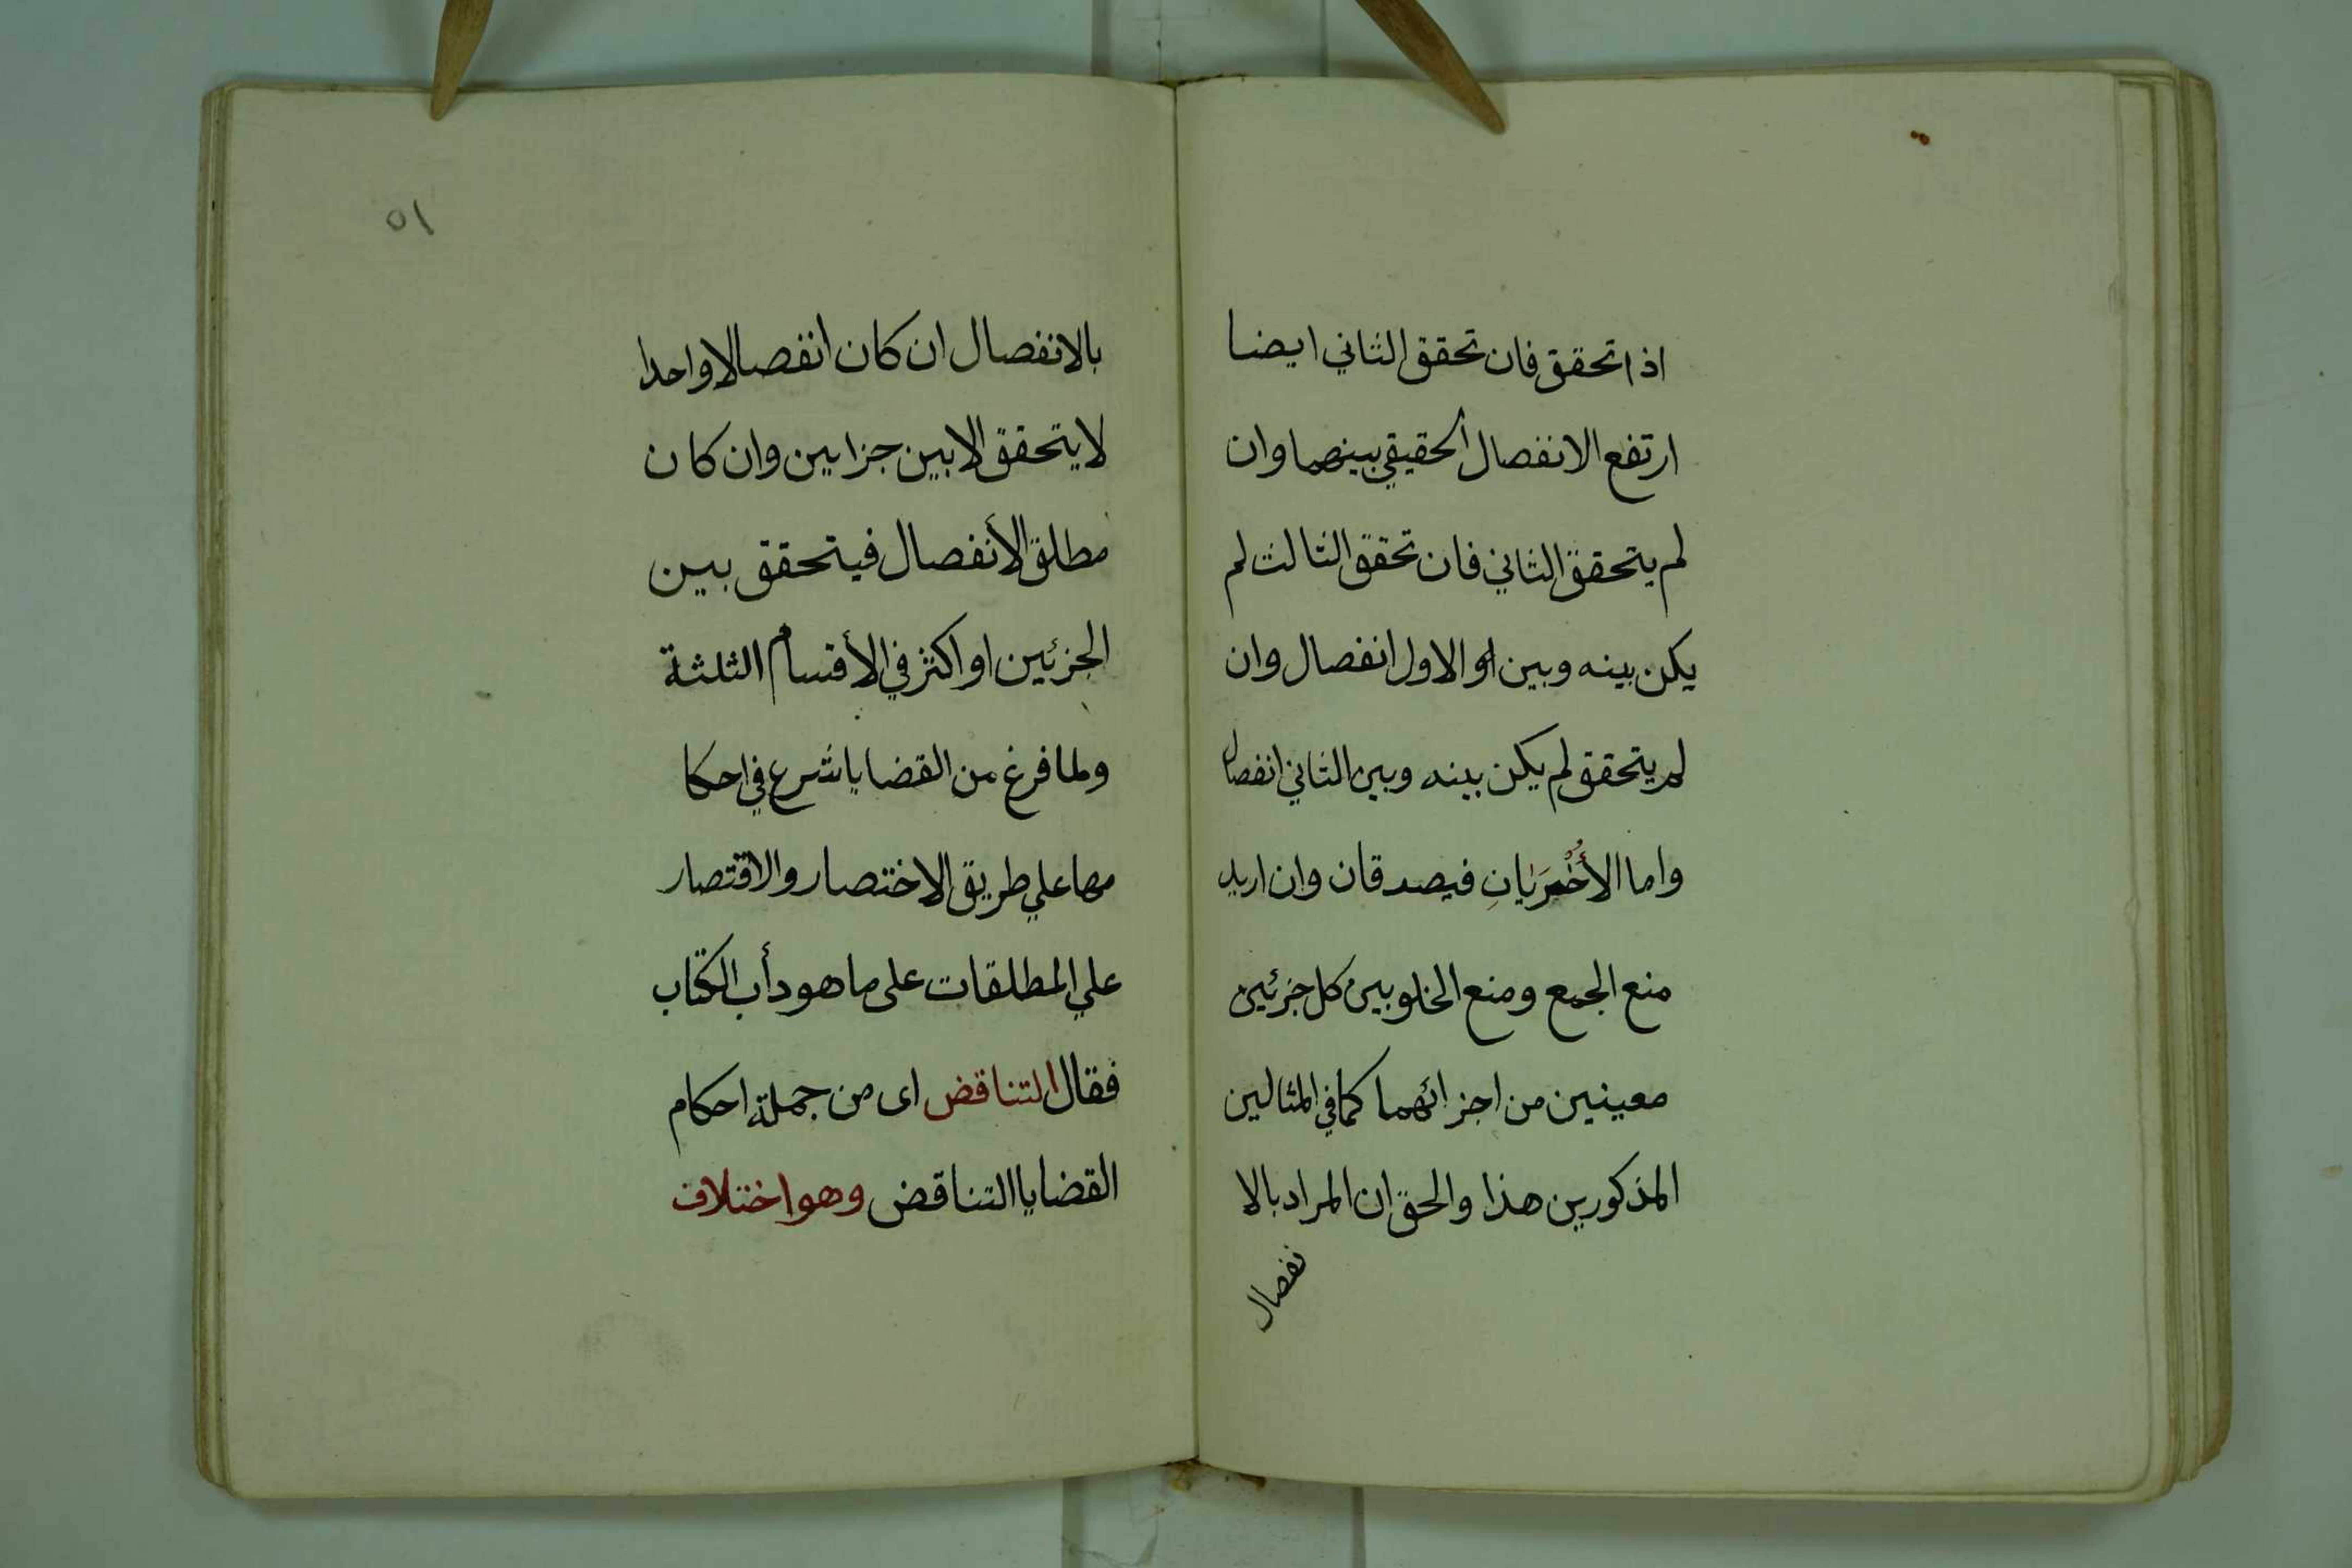 اذا تحقق فان تحقق الثاني ايضا
ارتفع الانفصال الحقيقي بينهما وان
لم يتحقق الثاني فان تحقق الثالث لم
يكن بينه وبين او الاول انفصال وان
لم يتحقق لم يكن بينه وبين الثاني انفصال
واما الأُخْرَيانِ فيصدقان وان اريد
منع الجمع ومنع الخلو بين كل جزئين
معينين من اجزائهما كما في المثالين
المذكورين هذا والحق ان المراد بالا
نفصال
٥١
بالانفصال ان كان انفصالا واحدا
لا يتحقق الا بين جزاين وان كان
مطلق الأنفصال فيتحقق بين
الجزئين او اكثر في الأقسام الثلثة
ولما فرغ من القضايا شرع في احكا
مها علي طريق الاختصار والاقتصار
علي المطلقات على ما هو دأب الكتاب
فقال التناقض اى من جملة احكام
القضايا التناقض وهو اختلاف